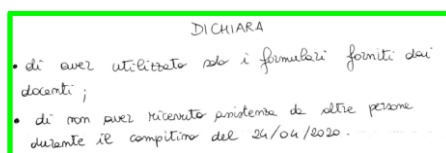 DICHIARA
• di aver utilizzato solo i formulari forniti dai
docenti ;
• di non aver ricevuto assistenza da altre persone
durante il compitino del 24/04/2020.